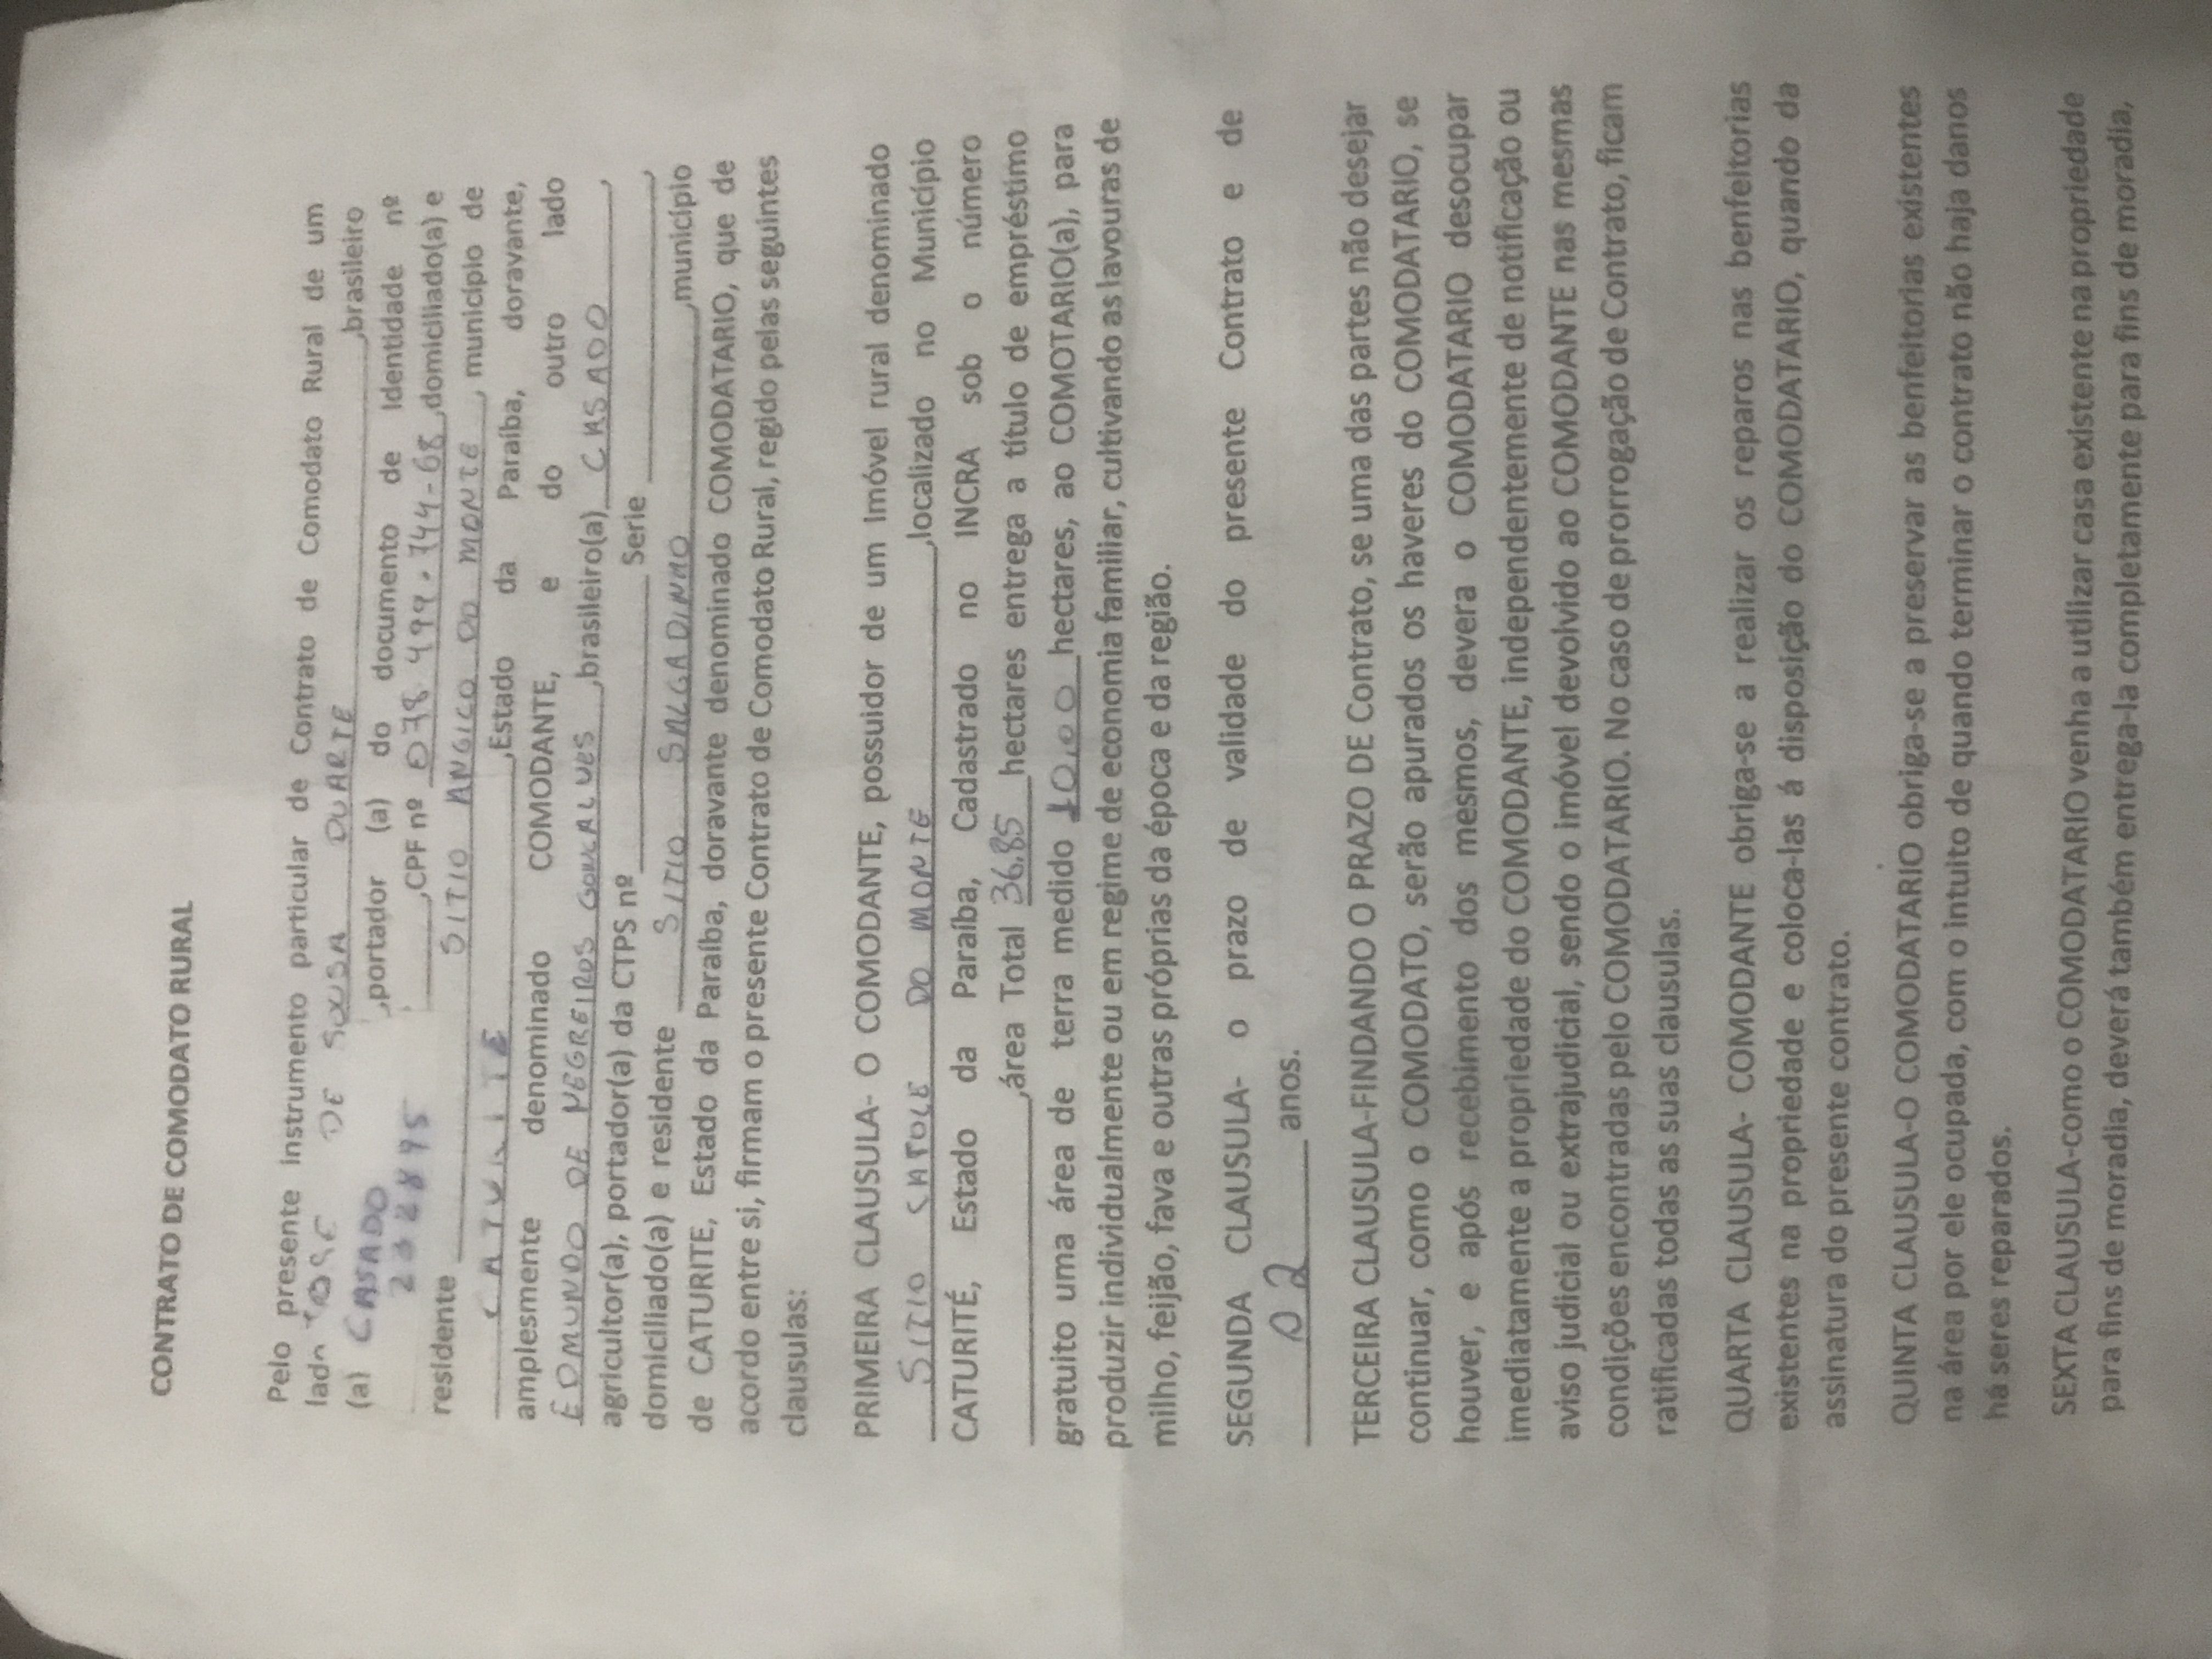 CONTRATO DE COMODATO RURAL
Pelo presente instrumento particular de Contrato de Comodato Rural de um
lado JOSE DE SOUSA DUARTE ,brasileiro
(a) CASADO ,portador (a) do documento de Identidade nº
,CPF nº 078 499.744-68 ,domiciliado(a) e
residente SITIO ANGICO DO MONTE , município de
CATURITE ,Estado da Paraíba, doravante,
amplesmente denominado COMODANTE, e do outro lado
EDMUNDO DE NEGREIROS GONCALVES ,brasileiro(a) CASADO ,
agricultor(a), portador(a) da CTPS nº Serie ,
domiciliado(a) e residente SITIO SALGADINHO ,município
de CATURITE, Estado da Paraíba, doravante denominado COMODATARIO, que de
acordo entre si, firmam o presente Contrato de Comodato Rural, regido pelas seguintes
clausulas:
PRIMEIRA CLAUSULA- O COMODANTE, possuidor de um Imóvel rural denominado
SITIO CATOLE DO MONTE ,localizado no Município
CATURITÉ, Estado da Paraíba, Cadastrado no INCRA sob o número
,área Total 36.85 hectares entrega a título de empréstimo
gratuito uma área de terra medido 10,00 hectares, ao COMOTARIO(a), para
produzir individualmente ou em regime de economia familiar, cultivando as lavouras de
milho, feijão, fava e outras próprias da época e da região.
SEGUNDA CLAUSULA- o prazo de validade do presente Contrato e de
02 anos.
TERCEIRA CLAUSULA-FINDANDO O PRAZO DE Contrato, se uma das partes não desejar
continuar, como o COMODATO, serão apurados os haveres do COMODATARIO, se
houver, e após recebimento dos mesmos, devera o COMODATARIO desocupar
imediatamente a propriedade do COMODANTE, independentemente de notificação ou
aviso judicial ou extrajudicial, sendo o imóvel devolvido ao COMODANTE nas mesmas
condições encontradas pelo COMODATARIO. No caso de prorrogação de Contrato, ficam
ratificadas todas as suas clausulas.
QUARTA CLAUSULA- COMODANTE obriga-se a realizar os reparos nas benfeitorias
existentes na propriedade e coloca-las á disposição do COMODATARIO, quando da
assinatura do presente contrato.
QUINTA CLAUSULA-O COMODATARIO obriga-se a preservar as benfeitorias existentes
na área por ele ocupada, com o intuito de quando terminar o contrato não haja danos
há seres reparados.
SEXTA CLAUSULA-como o COMODATARIO venha a utilizar casa existente na propriedade
para fins de moradia, deverá também entrega-la completamente para fins de moradia,